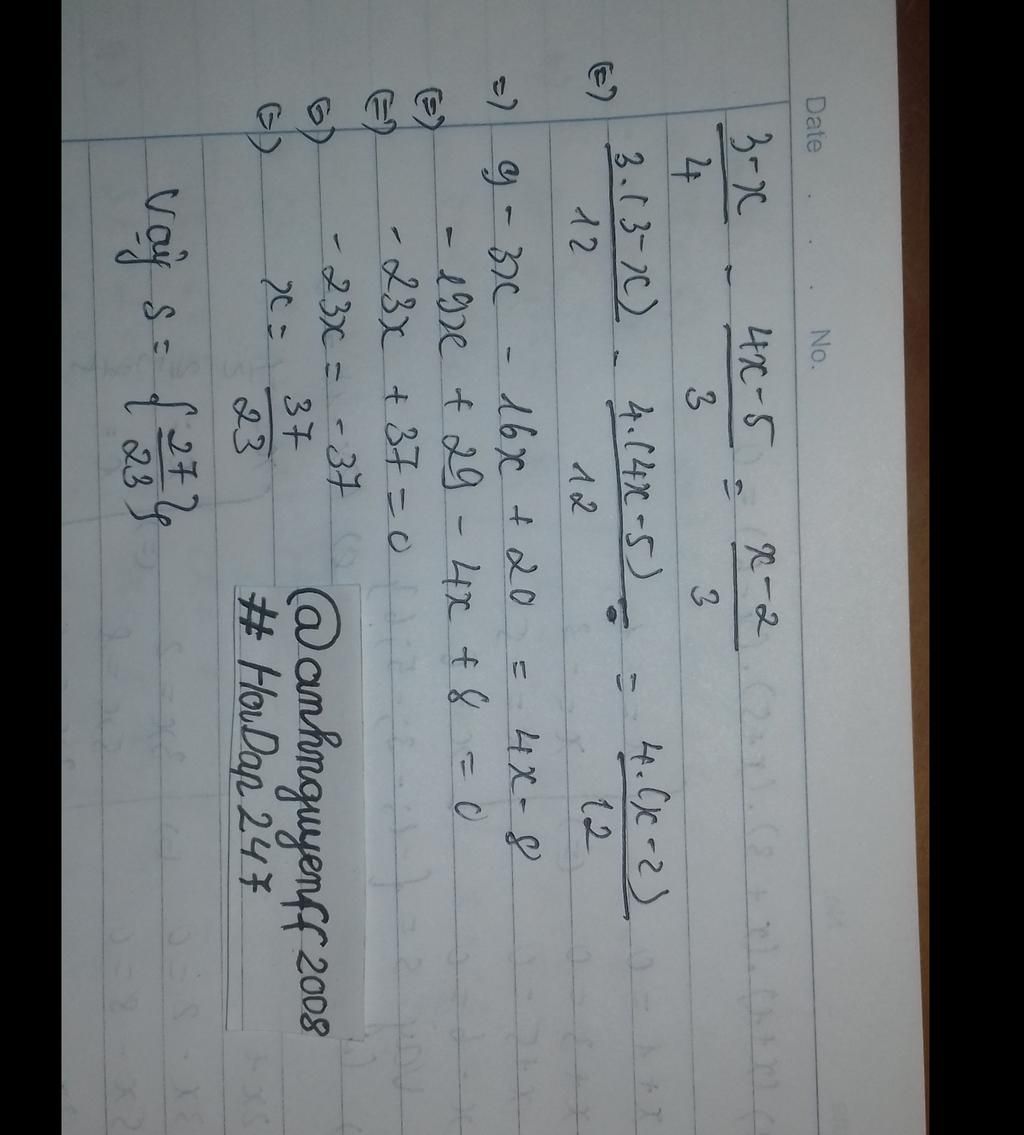 Date . . . No.
3-x/4 - 4x-5/3 = x-2/3
(=) 3.(3-x)/12 - 4.(4x-5)/12 = 4.(x-2)/12
=) 9 - 3x - 16x + 20 = 4x - 8
(=) - 19x + 29 - 4x + 8 = 0
(=) - 23x + 37 = 0
(=) - 23x = - 37
(=) x = 37/23
Vậy S = {27/23}
@anhnguyetff2008
# HoiDap247